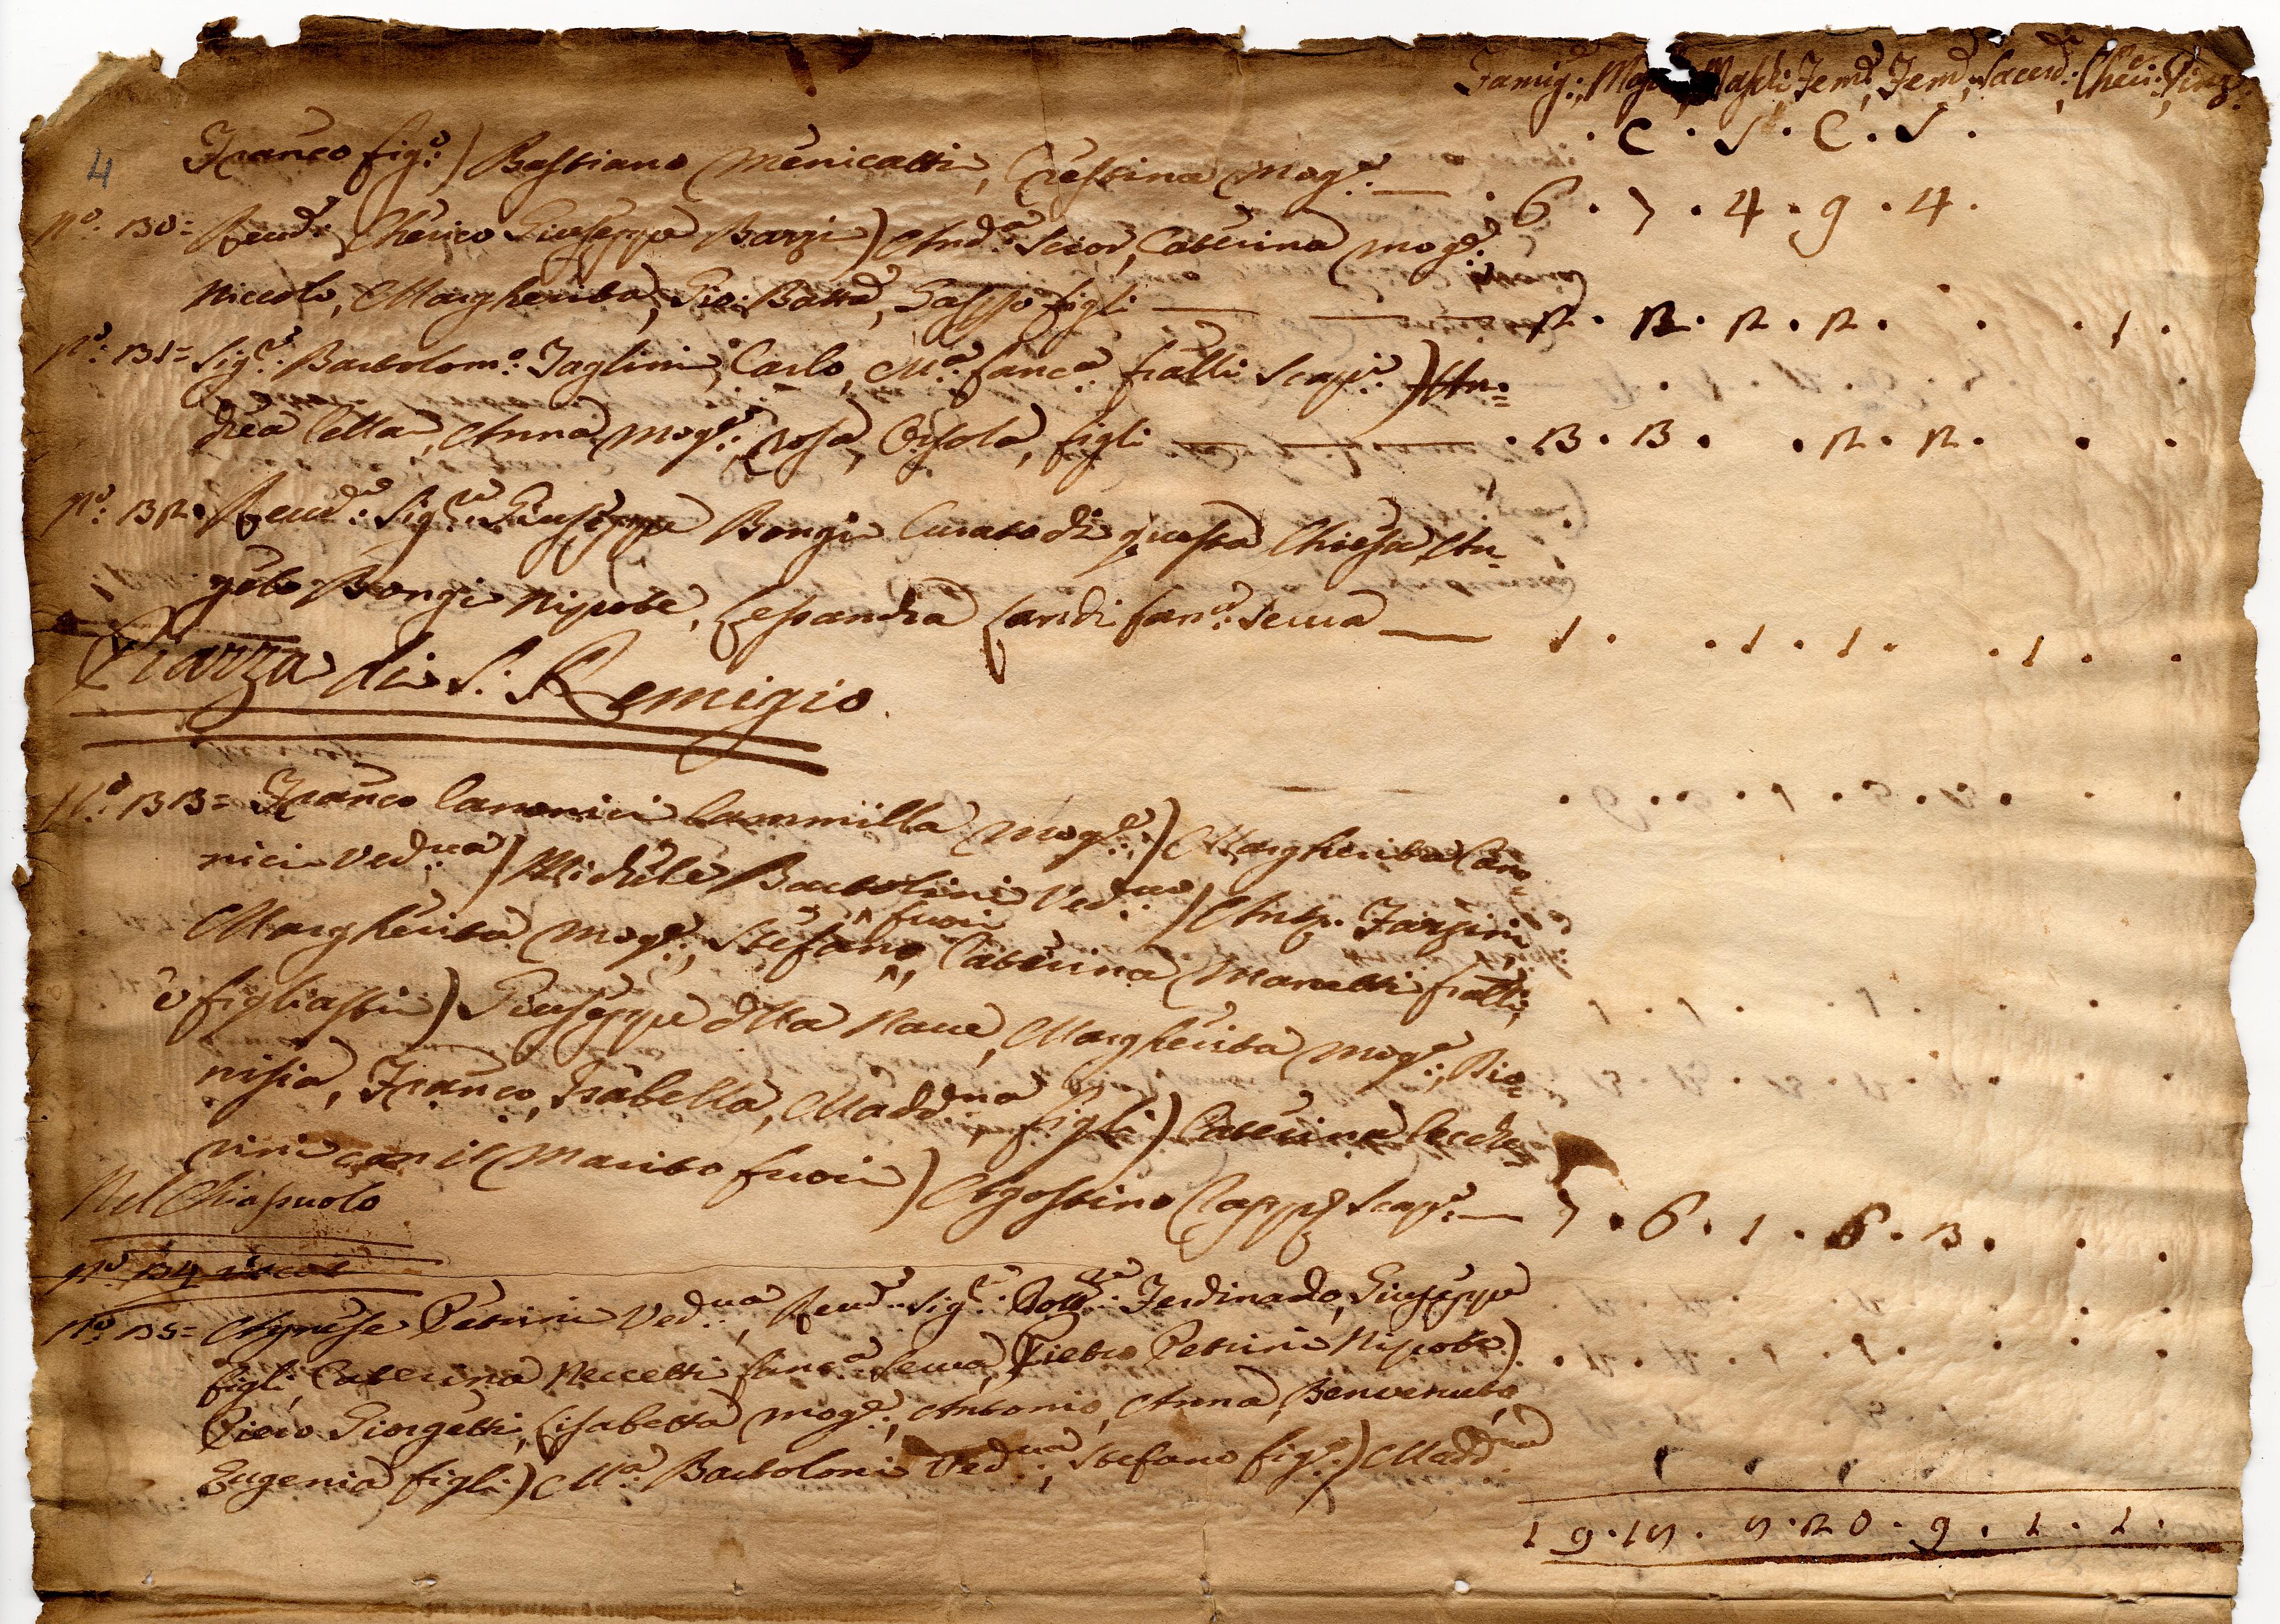 Famig:, Masc, Maschi, Fem:, Fem:, Sacerd:, Cheri:, Pinz:
. C . S . C . S .
4
Franco fig:) Bastiano Menicatti, Crestina Mog:e — . 6 . 7 . 4 . 9 . 4 .
No: 130 = Reud: Cherico Giuseppe Barzi) And:a Scior, Caterina mog:e
Niccolo, Margherita, Gio: Batta, Gasp:o figli — — — 2 . 2 . 2 . 2 . . . 1 .
No: 131 = Sig:r Bartolom:o Taglini, Carlo, M:a fanc:a fratelli Scap:i) An=
drea Cella, Anna Mog:e, Rosa, Orsola, figli — — — . 3 . 3 . . 2 . 2 . . .
No: 132 . Reud: Sig:r Giuseppe Bongi Curato di questa Chiesa, An=
gelo Bongi Nipote, Lessandra Landi fan:a serua — 1 . . 1 . 1 . . 1 . .
Piazza di S: Remigio
No: 133 = Franco Canonici Cammilla Mog:e) Margherita Cano=
nici Ved:ua) Michele Bartolini Ved:uo) Ant:o Farsini,
Margherita Mog:e, Stefano, fuori Caterina Manetti fratelli,
e figliastri) Giuseppe della Naue, Margherita Mog:e, Dio=
nisia, Franco, Isabella, Madd:na figli) Caterina Cecche=
rini con il Marito fuori) Agostino Cappi Scap:o — 7 . 6 . 1 . 6 . 3 . . .
Nel Chiassuolo
No: 134
No: 135 = Agnese Petrini Ved:ua, Reud: Sig:r Dott:r Ferdinando, Giuseppe
figli, Caterina Neccetti fanc:a Serua, Pietro Petrini Nipote)
Piero Giorgetti, Lisabetta mog:e, Antonio, Anna, Benvenuto,
Eugenia figli) M:a Bartoloni Ved:ua, Stefano fig:o) Madd:na
19 . 18 . 8 . 20 . 9 . 1 . 1 .